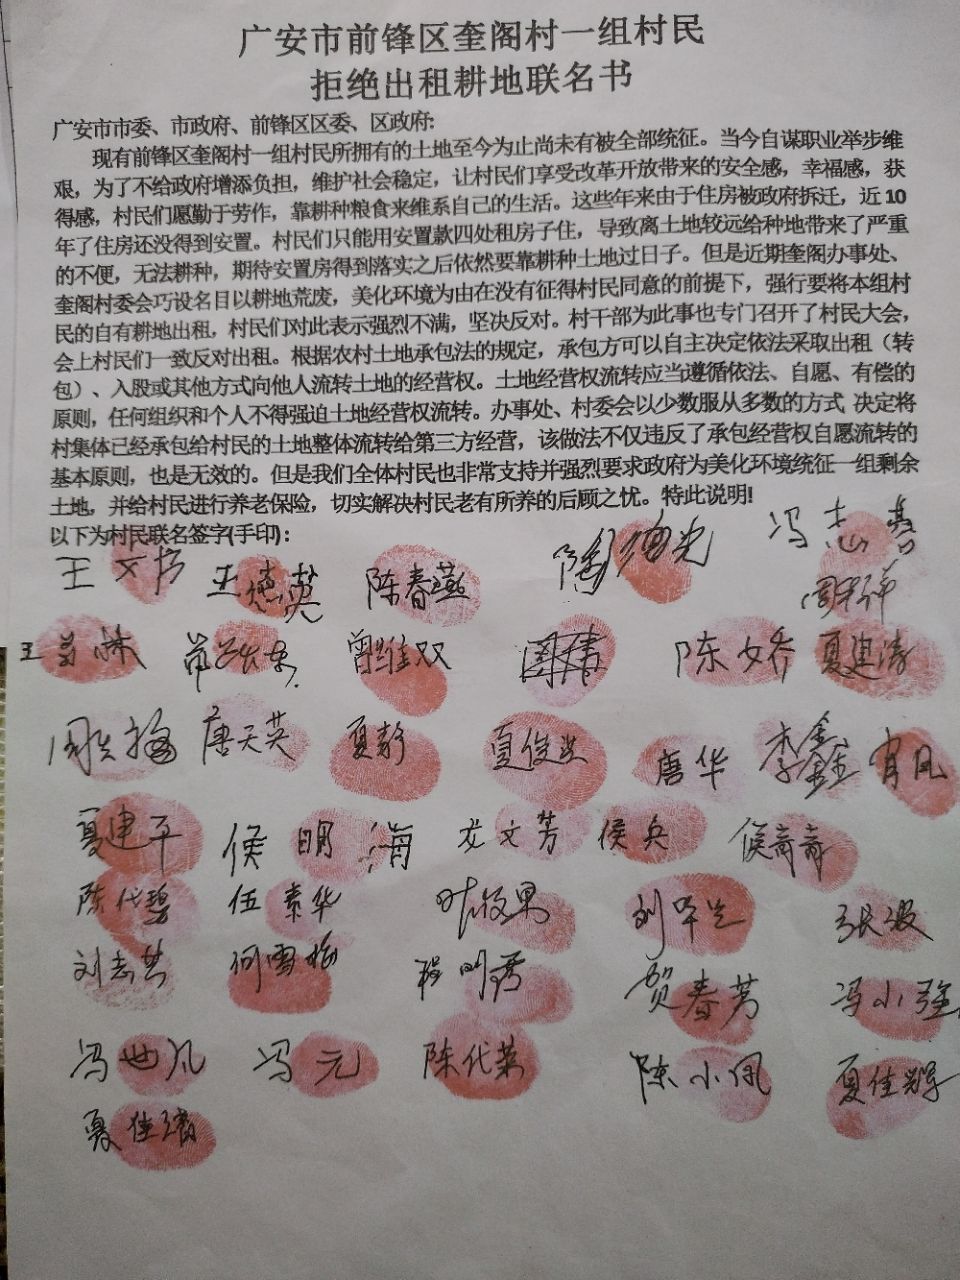 广安市前锋区奎阁村一组村民
拒绝出租耕地联名书
广安市市委、市政府、前锋区区委、区政府:
现有前锋区奎阁村一组村民所拥有的土地至今为止尚未有被全部统征。当今自谋职业举步维
艰，为了不给政府增添负担，维护社会稳定，让村民们享受改革开放带来的安全感，幸福感，获
得感，村民们愿勤于劳作，靠耕种粮食来维系自己的生活。这些年来由于住房被政府拆迁，近10
年了住房还没得到安置。村民们只能用安置款四处租房子住，导致离土地较远给种地带来了严重
的不便，无法耕种，期待安置房得到落实之后依然要靠耕种土地过日子。但是近期奎阁办事处、
奎阁村委会巧设名目以耕地荒废，美化环境为由在没有征得村民同意的前提下，强行要将本组村
民的自有耕地出租，村民们对此表示强烈不满，坚决反对。村干部为此事也专门召开了村民大会，
会上村民们一致反对出租。根据农村土地承包法的规定，承包方可以自主决定依法采取出租（转
包）、入股或其他方式向他人流转土地的经营权。土地经营权流转应当遵循依法、自愿、有偿的
原则，任何组织和个人不得强迫土地经营权流转。办事处、村委会以少数服从多数的方式 决定将
村集体已经承包给村民的土地整体流转给第三方经营，该做法不仅违反了承包经营权自愿流转的
基本原则，也是无效的。但是我们全体村民也非常支持并强烈要求政府为美化环境统征一组剩余
土地，并给村民进行养老保险，切实解决村民老有所养的后顾之忧。特此说明!
以下为村民联名签字(手印)：
王德英 陈春燕 陶德光
曾维双 陈女乔 夏建涛
唐天英 夏静 唐华 李鑫鑫 肖凤
夏建平 侯明海 龙文芳 侯兵 侯奇奇
陈代碧 伍素华 张波
刘志芬 何雪梅 程明秀 贺春芳 冯小强
冯世凡 冯元 陈代荣 陈小凤 夏佳辉
夏佳靖